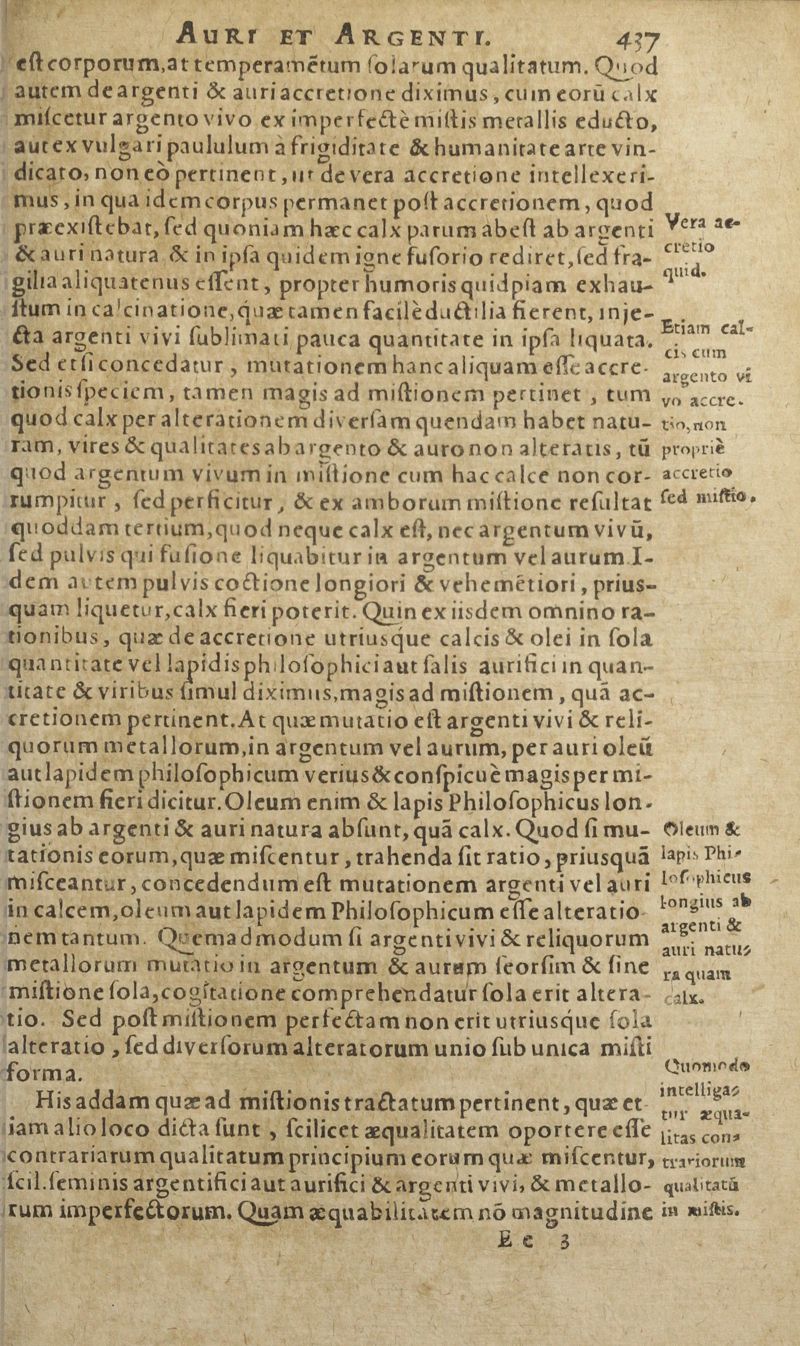 AURI ET ARGENTI. 437
eſt corporum, at temperamētum ſolarum qualitatum. Quod
autem de argenti & auri accretione diximus, cum eorū calx
miſcetur argento vivo ex imperfectè miſtis metallis educto,
aut ex vulgari paululum à frigiditate & humanitate arte vin-
dicato, non eò pertinent, ut de vera accretione intellexeri-
mus, in qua idem corpus permanet poſt accretionem, quod
præexiſtebat, ſed quoniam hæc calx parum abeſt ab argenti
& auri natura & in ipſa quidem igne fuſorio rediret, ſed fra-
gilia aliquatenus eſſent, propter humoris quidpiam exhau-
ſtum in calcinatione, quæ tamen facilè ductilia fierent, inje-
cta argenti vivi ſublimati pauca quantitate in ipſa liquata.
Sed etſi concedatur, mutationem hanc aliquam eſſe accre-
tionis ſpeciem, tamen magis ad miſtionem pertinet, tum
quod calx per alterationem diverſam quendam habet natu-
ram, vires & qualitates ab argento & auro non alteratis, tū
quod argentum vivum in miſtione cum hac calce non cor-
rumpitur, ſed perficitur, & ex amborum miſtione reſultat
quoddam tertium, quod neque calx eſt, nec argentum vivū,
ſed pulvis qui fuſione liquabitur in argentum vel aurum. I-
dem autem pulvis coctione longiori & vehemētiori, prius-
quam liquetur, calx fieri poterit. Quin ex iisdem omnino ra-
tionibus, quæ de accretione utriusque calcis & olei in ſola
quantitate vel lapidis philoſophici aut ſalis aurifici in quan-
titate & viribus ſimul diximus, magis ad miſtionem, quā ac-
cretionem pertinent. At quæ mutatio eſt argenti vivi & reli-
quorum metallorum, in argentum vel aurum, per auri oleū
aut lapidem philoſophicum verius & conſpicuè magis per mi-
ſtionem fieri dicitur. Oleum enim & lapis Philoſophicus lon-
gius ab argenti & auri natura abſunt, quā calx. Quod ſi mu-
tationis eorum, quæ miſcentur, trahenda ſit ratio, priusquā
miſceantur, concedendum eſt mutationem argenti vel auri
in calcem, oleum aut lapidem Philoſophicum eſſe alteratio
nem tantum. Quemadmodum ſi argenti vivi & reliquorum
metallorum mutatio in argentum & aurum ſeorſim & ſine
miſtione ſola, cogitatione comprehendatur ſola erit altera-
tio. Sed poſt miſtionem perfectam non erit utriusque ſola
alteratio, ſed diverſorum alteratorum unio ſub unica miſti
forma.
His addam quæ ad miſtionis tractatum pertinent, quæ et
iam alio loco dicta ſunt, ſcilicet æqualitatem oportere eſſe
contrariarum qualitatum principium eorum quæ miſcentur,
ſcil. ſeminis argentifici aut aurifici & argenti vivi, & metallo-
rum imperfectorum. Quam æquabilitatem nō magnitudine
Ee 3
Vera ac-
cretio
quid.
Etiam cal-
cis cum
argento vi
vo accre-
tio, non
propriè
accretio
ſed miſtio.
Oleum &
lapis Phi-
loſophicus
longius ab
argenti &
auri natu-
ra quam
calx.
Quomodo
intelligas
tur æqua-
litas con-
trariorum
qualitatū
in miſtis.